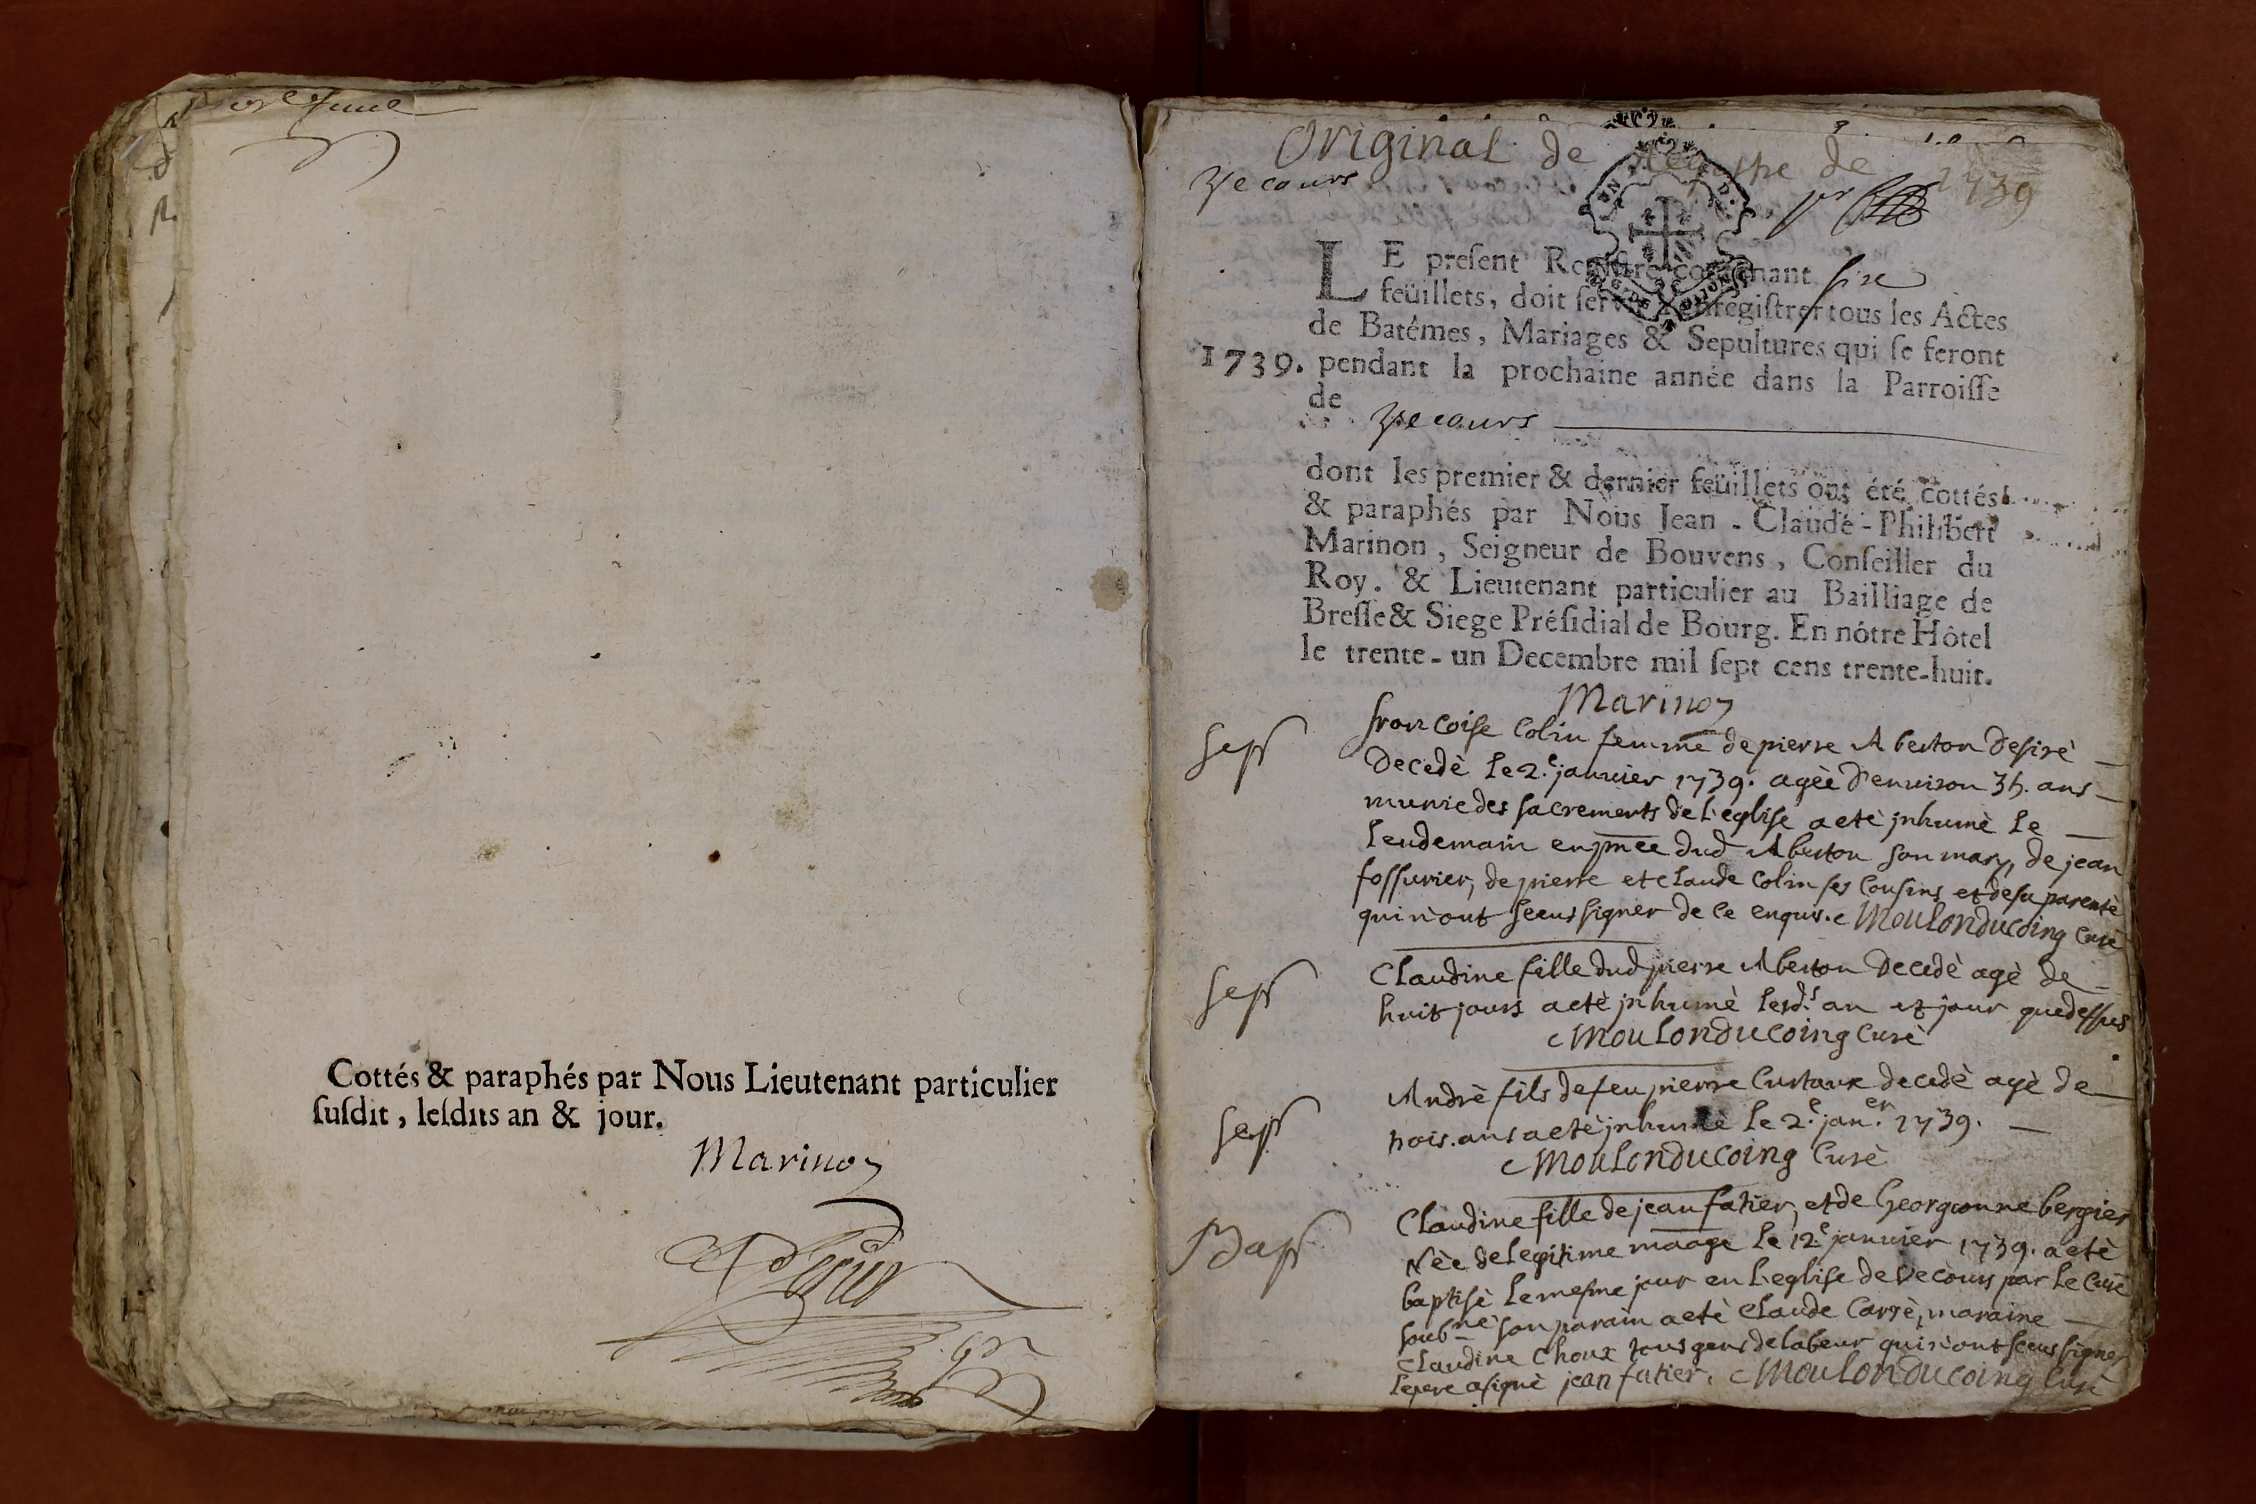 Cottés & paraphés par Nous Lieutenant particulier
ſuſdit, leſdits an & jour.
Marinon
Original de Registre de 1739
Vecours
LE preſent Regiſtre contenant six
feüillets, doit ſervir à enregiſtrer tous les Actes
de Batêmes, Mariages & Sepultures qui ſe feront
1739. pendant la prochaine année dans la Parroiſſe
de Vecours
dont les premier & dernier feüillets ont été cottés
& paraphés par Nous Jean-Claude-Philibert
Marinon, Seigneur de Bouvens, Conſeiller du
Roy. & Lieutenant particulier au Bailliage de
Breſſe & Siege Préſidial de Bourg. En nôtre Hôtel
le trente-un Decembre mil ſept cens trente-huit.
Marinon
Sep francoise Colin femme de pierre Aberton desirè
Decedè le 2.e janvier 1739. agèe d'environ ans
munie des sacrements de l'eglise a etè jnhumè le
lendemain en pnce dud Aberton son mary, de jean
fossurier, de pierre et claude Colin ses Cousins et de sa parentè
qui n'ont sceus signer de ce enquis. Moulonducoing Curè
Sep Claudine fille dud pierre Aberton Decedè agè de
huit jours a etè jnhumè lesd.s an et jour que dessus
Moulonducoing Curè
Sep Andrè fils de feu pierre decedè agè de
trois ans a etè jnhumè le 2.e jan.er 1739.
Moulonducoing Curè
Bap Claudine fille de jean fatier, et de Georgeonne bergier
Nèe de legitime maage le 12.e janvier 1739. a etè
baptisè le mesme jour en l'eglise de Vecours par le Curè
soub.nè son parain a etè Claude Carrè, maraine
Claudine Choux tous gens de labeur qui n'ont sceus signer
le pere a signè jean fatier. Moulonducoing Curè